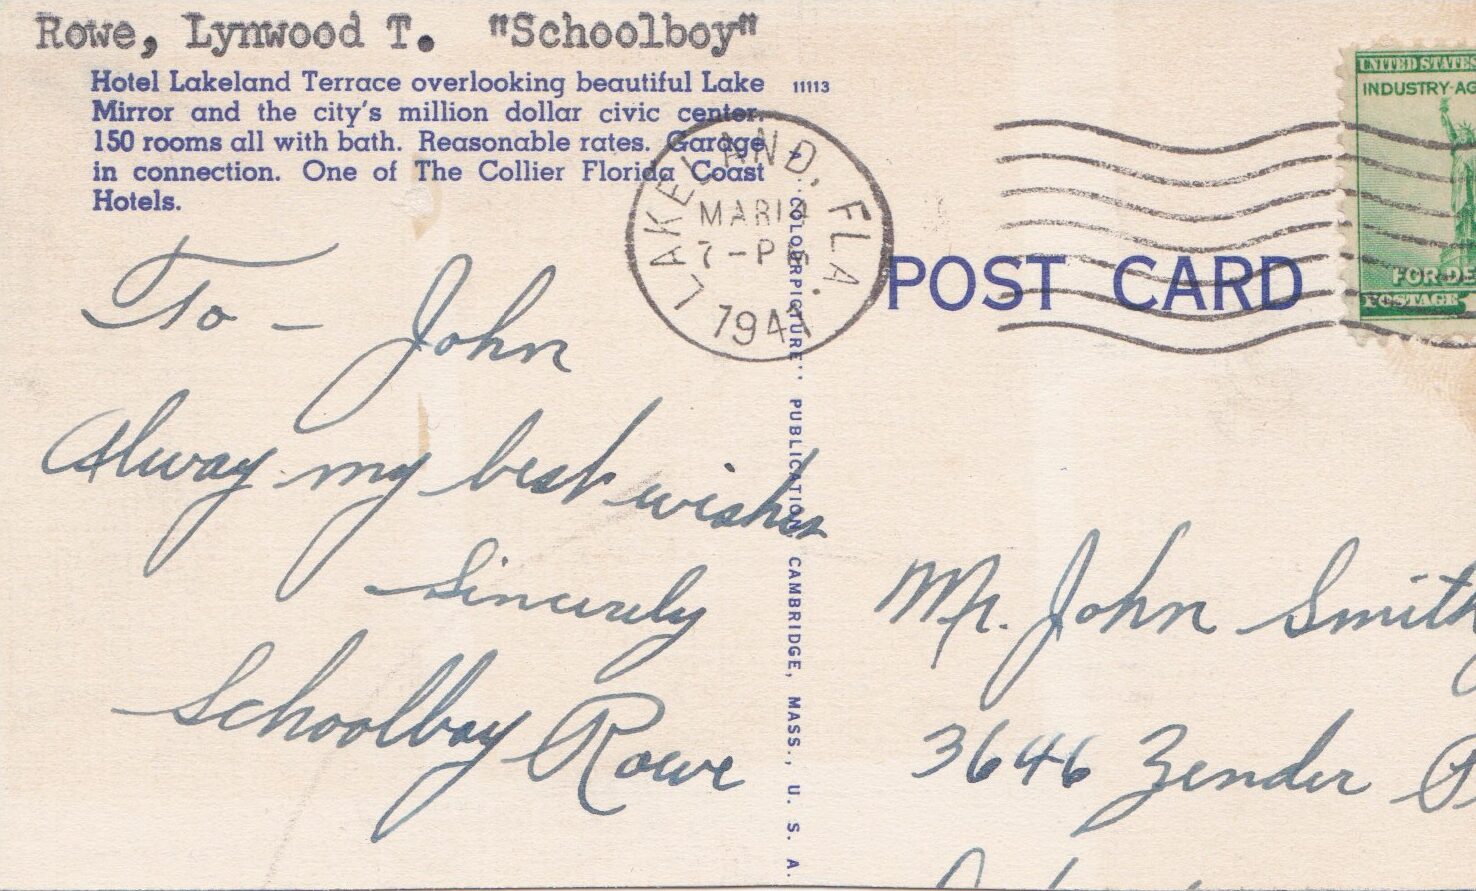 Rowe, Lynwood T. "Schoolboy"
Hotel Lakeland Terrace overlooking beautiful Lake
Mirror and the city's million dollar civic center.
150 rooms all with bath. Reasonable rates. Garage
in connection. One of The Collier Florida Coast
Hotels.
11113
LAKELAND, FLA.
MAR 14
7-PM
1941
UNITED STATES
INDUSTRY-AG
FOR DE
POSTAGE
POST CARD
"COLOURPICTURE" PUBLICATION, CAMBRIDGE, MASS., U. S. A.
To - John
Alway my best wishes
Sincerely
Schoolboy Rowe
Mr. John Smith
3646 Zender